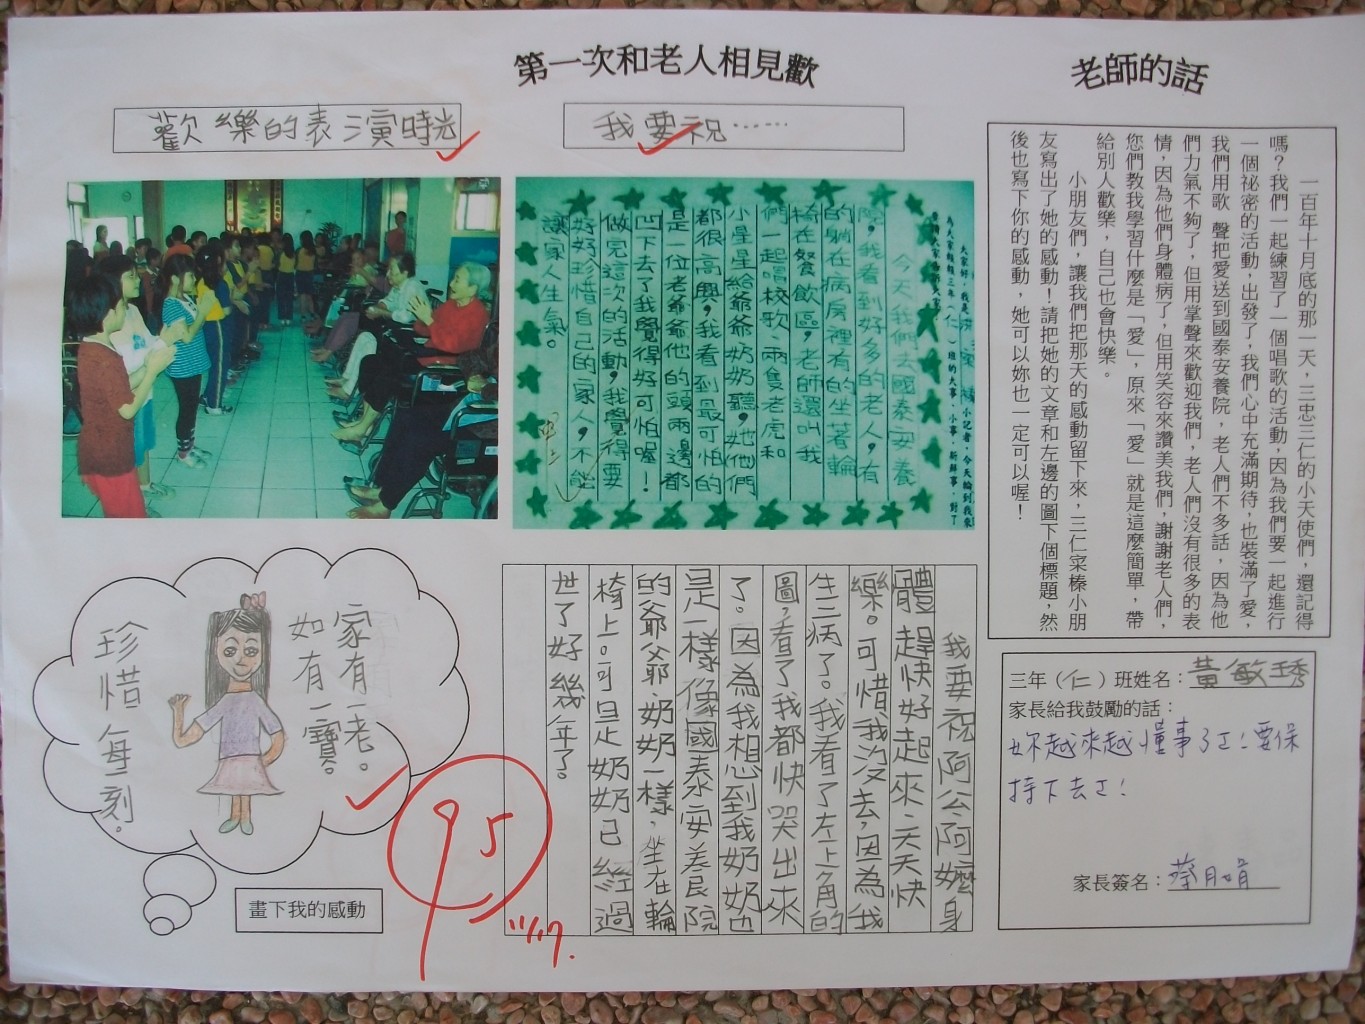 第一次和老人相見歡
老師的話
歡樂的表演時光
我要祝……
大家好，我是
小記者，今天輪到我來
為大家報報三年（仁）班的大事、小事、新鮮事，對了
今天我們去國泰安養
院，我看到好多的老人，有
的躺在病房裡有的坐著輪
椅在餐飲區，老師還叫我
們一起唱校歌、兩隻老虎和
小星星給爺爺奶奶聽，她他們
都很高興，我看到最可怕的
是一位老爺爺他的頭兩邊都
凹下去了我覺得好可怕喔！
做完這次的活動，我覺得要
好好珍惜自己的家人，不能
讓家人生氣。
一百年十月底的那一天，三忠三仁的小天使們，還記得
嗎？我們一起練習了一個唱歌的活動，因為我們要一起進行
一個祕密的活動，出發了，我們心中充滿期待，也裝滿了愛，
我們用歌 聲把愛送到國泰安養院，老人們不多話，因為他
們力氣不夠了，但用掌聲來歡迎我們，老人們沒有很多的表
情，因為他們身體病了，但用笑容來讚美我們，謝謝老人們，
您們教我學習什麼是「愛」，原來「愛」就是這麼簡單，帶
給別人歡樂，自己也會快樂。
小朋友們，讓我們把那天的感動留下來，三仁寀榛小朋
友寫出了她的感動！請把她的文章和左邊的圖下個標題，然
後也寫下你的感動，她可以妳也一定可以喔！
家有一老。
如有一寶。
珍惜每一刻。
畫下我的感動
我要祝阿公、阿嬤身
體趕快好起來、天天快
樂。可惜我沒去，因為我
生病了。我看了左上角的
圖，看了我都快哭出來
了。因為我想到我奶奶也
是一樣像國泰安養院
的爺爺、奶奶一樣，坐在輪
椅上。可是奶奶已經過
世了好幾年了。
95
11/17.
三年（仁）班姓名：黃敏琇
家長給我鼓勵的話：
妳越來越懂事了ㄛ！要保
持下去ㄛ！
家長簽名：蔡月娟